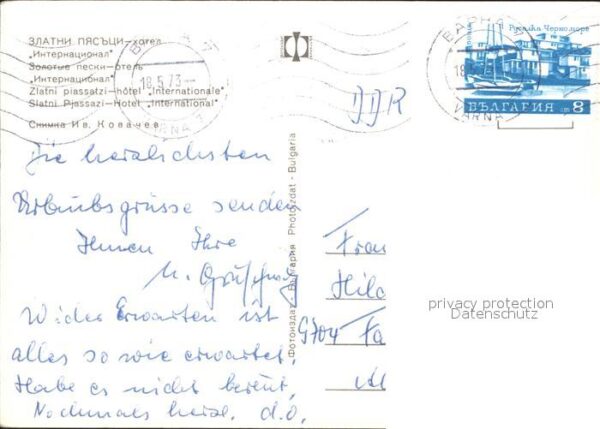 ЗЛАТНИ ПЯСЪЦИ—хотел
„Интернационал“
Золотые пески—отель
„Интернационал“
Zlatni piassatzi—hôtel „Internationale“
Slatni Pjassazi—Hotel „International“
Снимка Ив. Ковачев
18.5.73
VARNA
DDR
Русалка Черноморе
ВАРНА
VARNA
БЪЛГАРИЯ ст 8
Фотоиздат - България Photoizdat - Bulgaria
Die herzlichsten
Urlaubsgrüsse senden
Ihnen Ihre
Wider Erwarten ist
alles so wie erwartet.
Habe es nicht bereut.
Nochmals herzl. d.O.
Frau
Hild
9704 Fa
privacy protection
Datenschutz